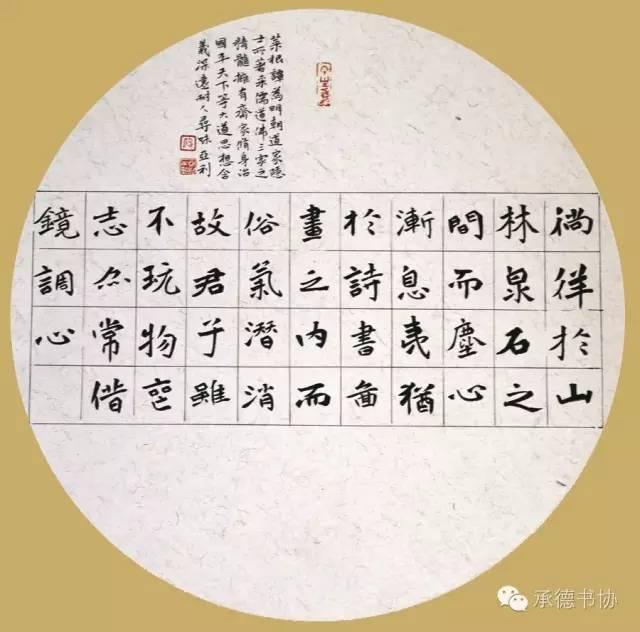 徜徉於山
林泉石之
間而塵心
漸息夷猶
於詩書啚
畫之內而
俗氣潛消
故君子雖
不玩物喪
志亦常借
鏡調心
菜根譚為明朝道家隱
士所著采儒道佛三家之
精髓擁有齋家脩身治
國平天下等大道思想含
義深遠耐人尋味亞利
承德书协